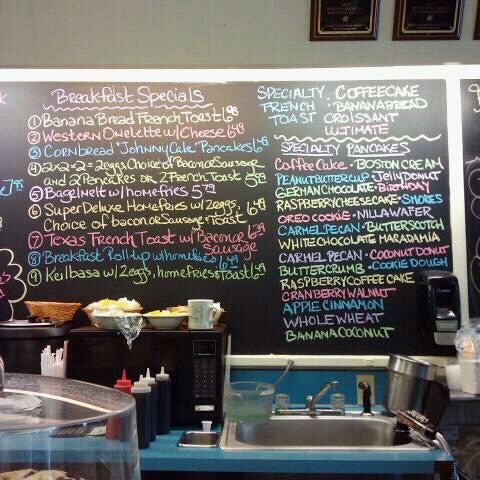 Breakfast Specials
① Banana Bread French Toast 6.99
② Western Omelette w/ Cheese 6.49
③ Cornbread "Johnny Cake" Pancakes 6.49
④ 2x2x2 = 2 eggs, Choice of Bacon or Sausage
and 2 Pancakes or 2 French Toast 5.99
⑤ Bagel melt w/ homefries 5.79
⑥ Super Deluxe Homefries w/ 2 eggs, 6.49
Choice of bacon or Sausage + Toast
⑦ Texas French Toast w/ Bacon or 6.49
Sausage
⑧ Breakfast Roll-up w/ homefries 6.49
⑨ Keilbasa w/ 2 eggs, homefries + Toast 6.49
SPECIALTY : COFFEECAKE
FRENCH : BANANABREAD
TOAST CROISSANT
ULTIMATE
SPECIALTY PANCAKES
Coffee Cake - BOSTON CREAM
PEANUTBUTTERCUP - JELLY DONUT
GERMAN CHOCOLATE - BIRTHDAY
RASPBERRY CHEESECAKE - SMORES
OREO COOKIE - NILLA WAFER
CARMEL PECAN - BUTTERSCOTCH
WHITE CHOCOLATE MACADAMIA
CARMEL PECAN - COCONUT DONUT
BUTTERCRUMB - COOKIE DOUGH
RASPBERRY COFFEE CAKE
CRANBERRY WALNUT
APPLE CINNAMON
WHOLE WHEAT
BANANA COCONUT